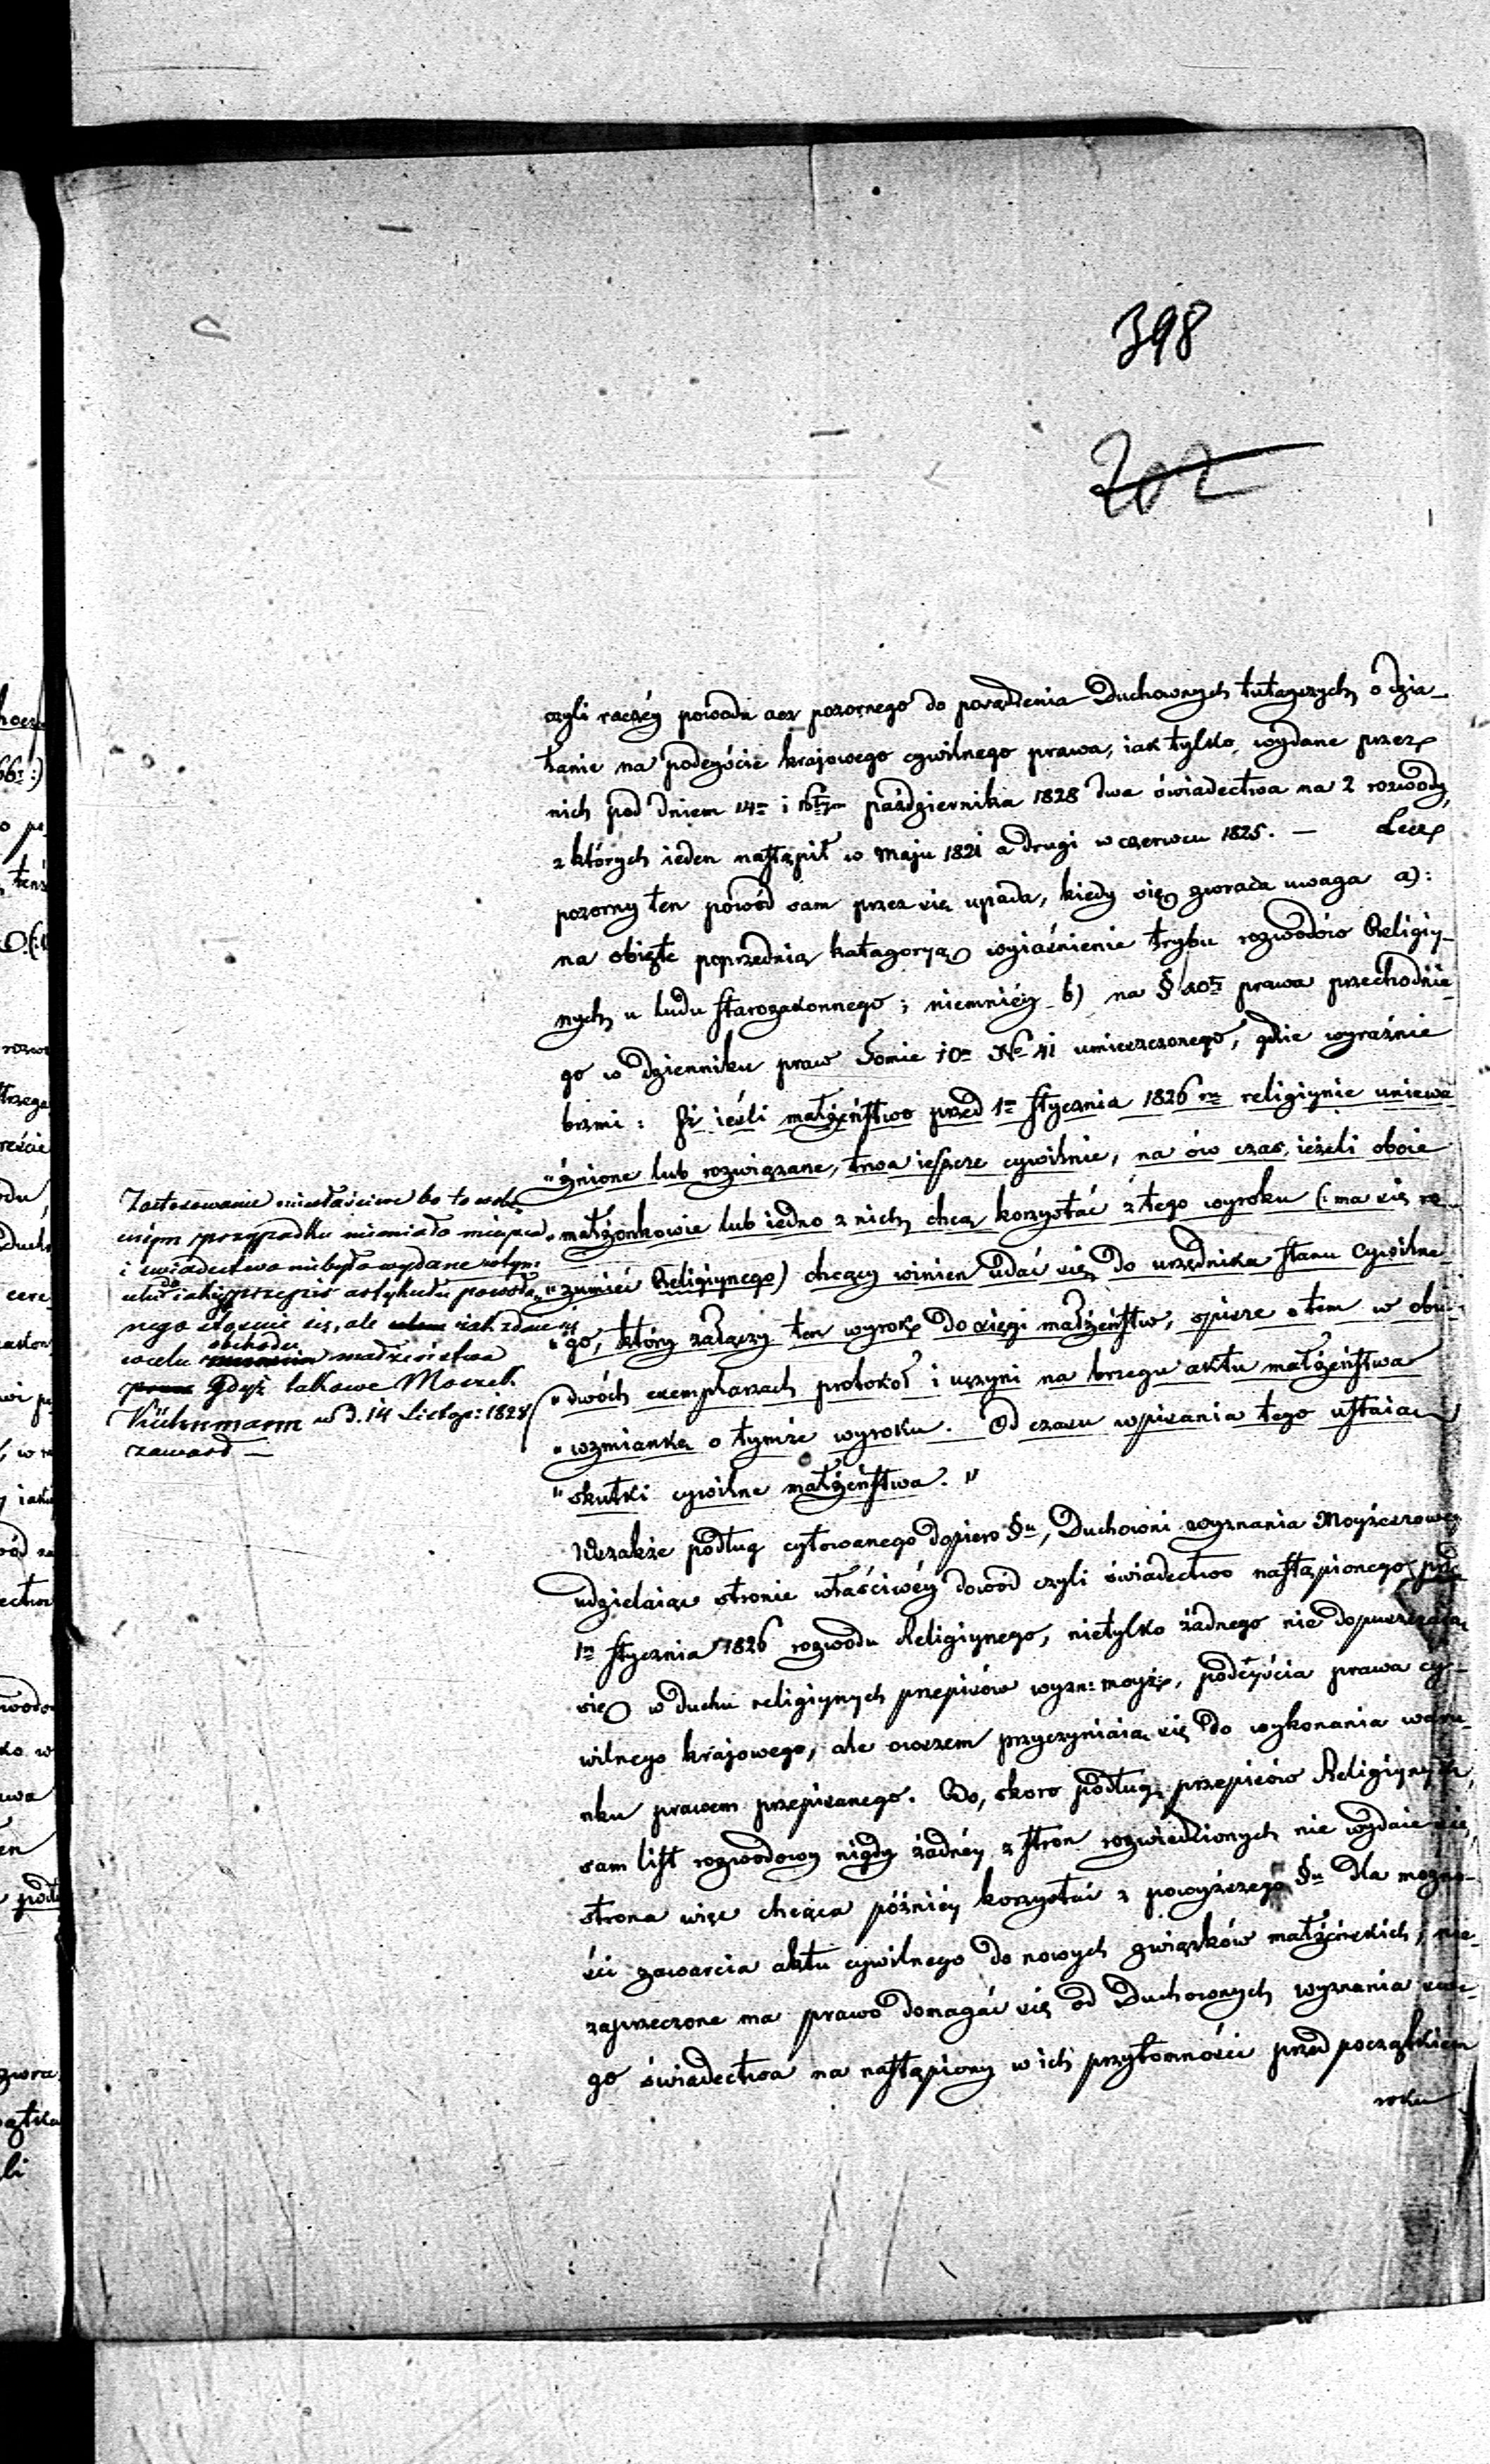 398
202
czyli raczéy powodu acz pozornego do posądzenia Duchownych tutayszych o dzia-
łanie na podeyście krajowego cywilnego prawa, iak tylko, wydane przez
nich pod dniem 14m i 16tym października 1828 dwa świadectwa na 2 rozwody,
z których ieden nastąpił w Maju 1821 a drugi w czerwcu 1825. — Lecz
pozorny ten powód sam przez się upada, kiedy się zwraca uwaga a):
na obięte poprzednią katagoryą wyiaśnienie trybu rozwodów Religiy-
nych u ludu starozakonnego; niemniéy b) na § 20tz prawa przechodnie-
go w dzienniku praw Tomie 10m No 41 umieszczonego, gdzie wyraźnie
brzmi: Iż ieśli małżeństwo przed 1m stycznia 1826 rm religiynie uniewa-
"żnione lub rozwiązane, trwa ieszcze cywilnie, na ów czas, ieżeli oboie
"małżonkowie lub iedno z nich, chcą korzystać z tego wyroku (: ma się ro-
"zumieć Religiynego) chcący winien udać się do urzędnika stanu Cywilne-
"go, który załączy ten wyrok do xięgi małżeństw, spisze o tem w obu-
"dwóch exemplarzach protokoł i uczyni na brzegu aktu małżeństwa
"wzmiankę o tymże wyroku. Od czasu wpisania tego ustaią
"skutki cywilne małżeństwa."
Wszakże podług cytowanego dopiero §u, Duchowni wyznania Moyżeszowego
udzielaiąc stronie właściwéy dowód czyli świadectwo nastąpionego przed
1m stycznia 1826 rozwodu Religiynego, nietylko żadnego nie dopuszczaią
się w duchu religiynych przepisów wyzn: moyż, podeyścia prawa cy-
wilnego krajowego, ale owszem przyczyniaią się do wykonania waru-
nku prawem przepisanego. Bo, skoro podług przepisów Religiynych,
sam list rozwodowy nigdy żadnéy z stron rozwiedzionych nie wydaie się,
strona więc chcąca późniéy korzystać z powyższego §u dla możno-
ści zawarcia aktu cywilnego do nowych związków małżeńskich, nie-
zaprzeczone ma prawo domagać się od Duchownych wyznania swe-
go świadectwa na nastąpiony w ich przytomności przed początkiem
roku
Zastosowanie niewłaściwe bo to w obe-
cnym przypadku niemiało mieysca
i świadectwo niebyło wydane w tym
celu do iakiego przepis artykułu powoła-
nego ściąga się, ale iak zdaie się
w celu obchodu małżeństwa
gdyż takowe Moszek
Kühnmann w d. 14 Listop: 1828
zawarł —